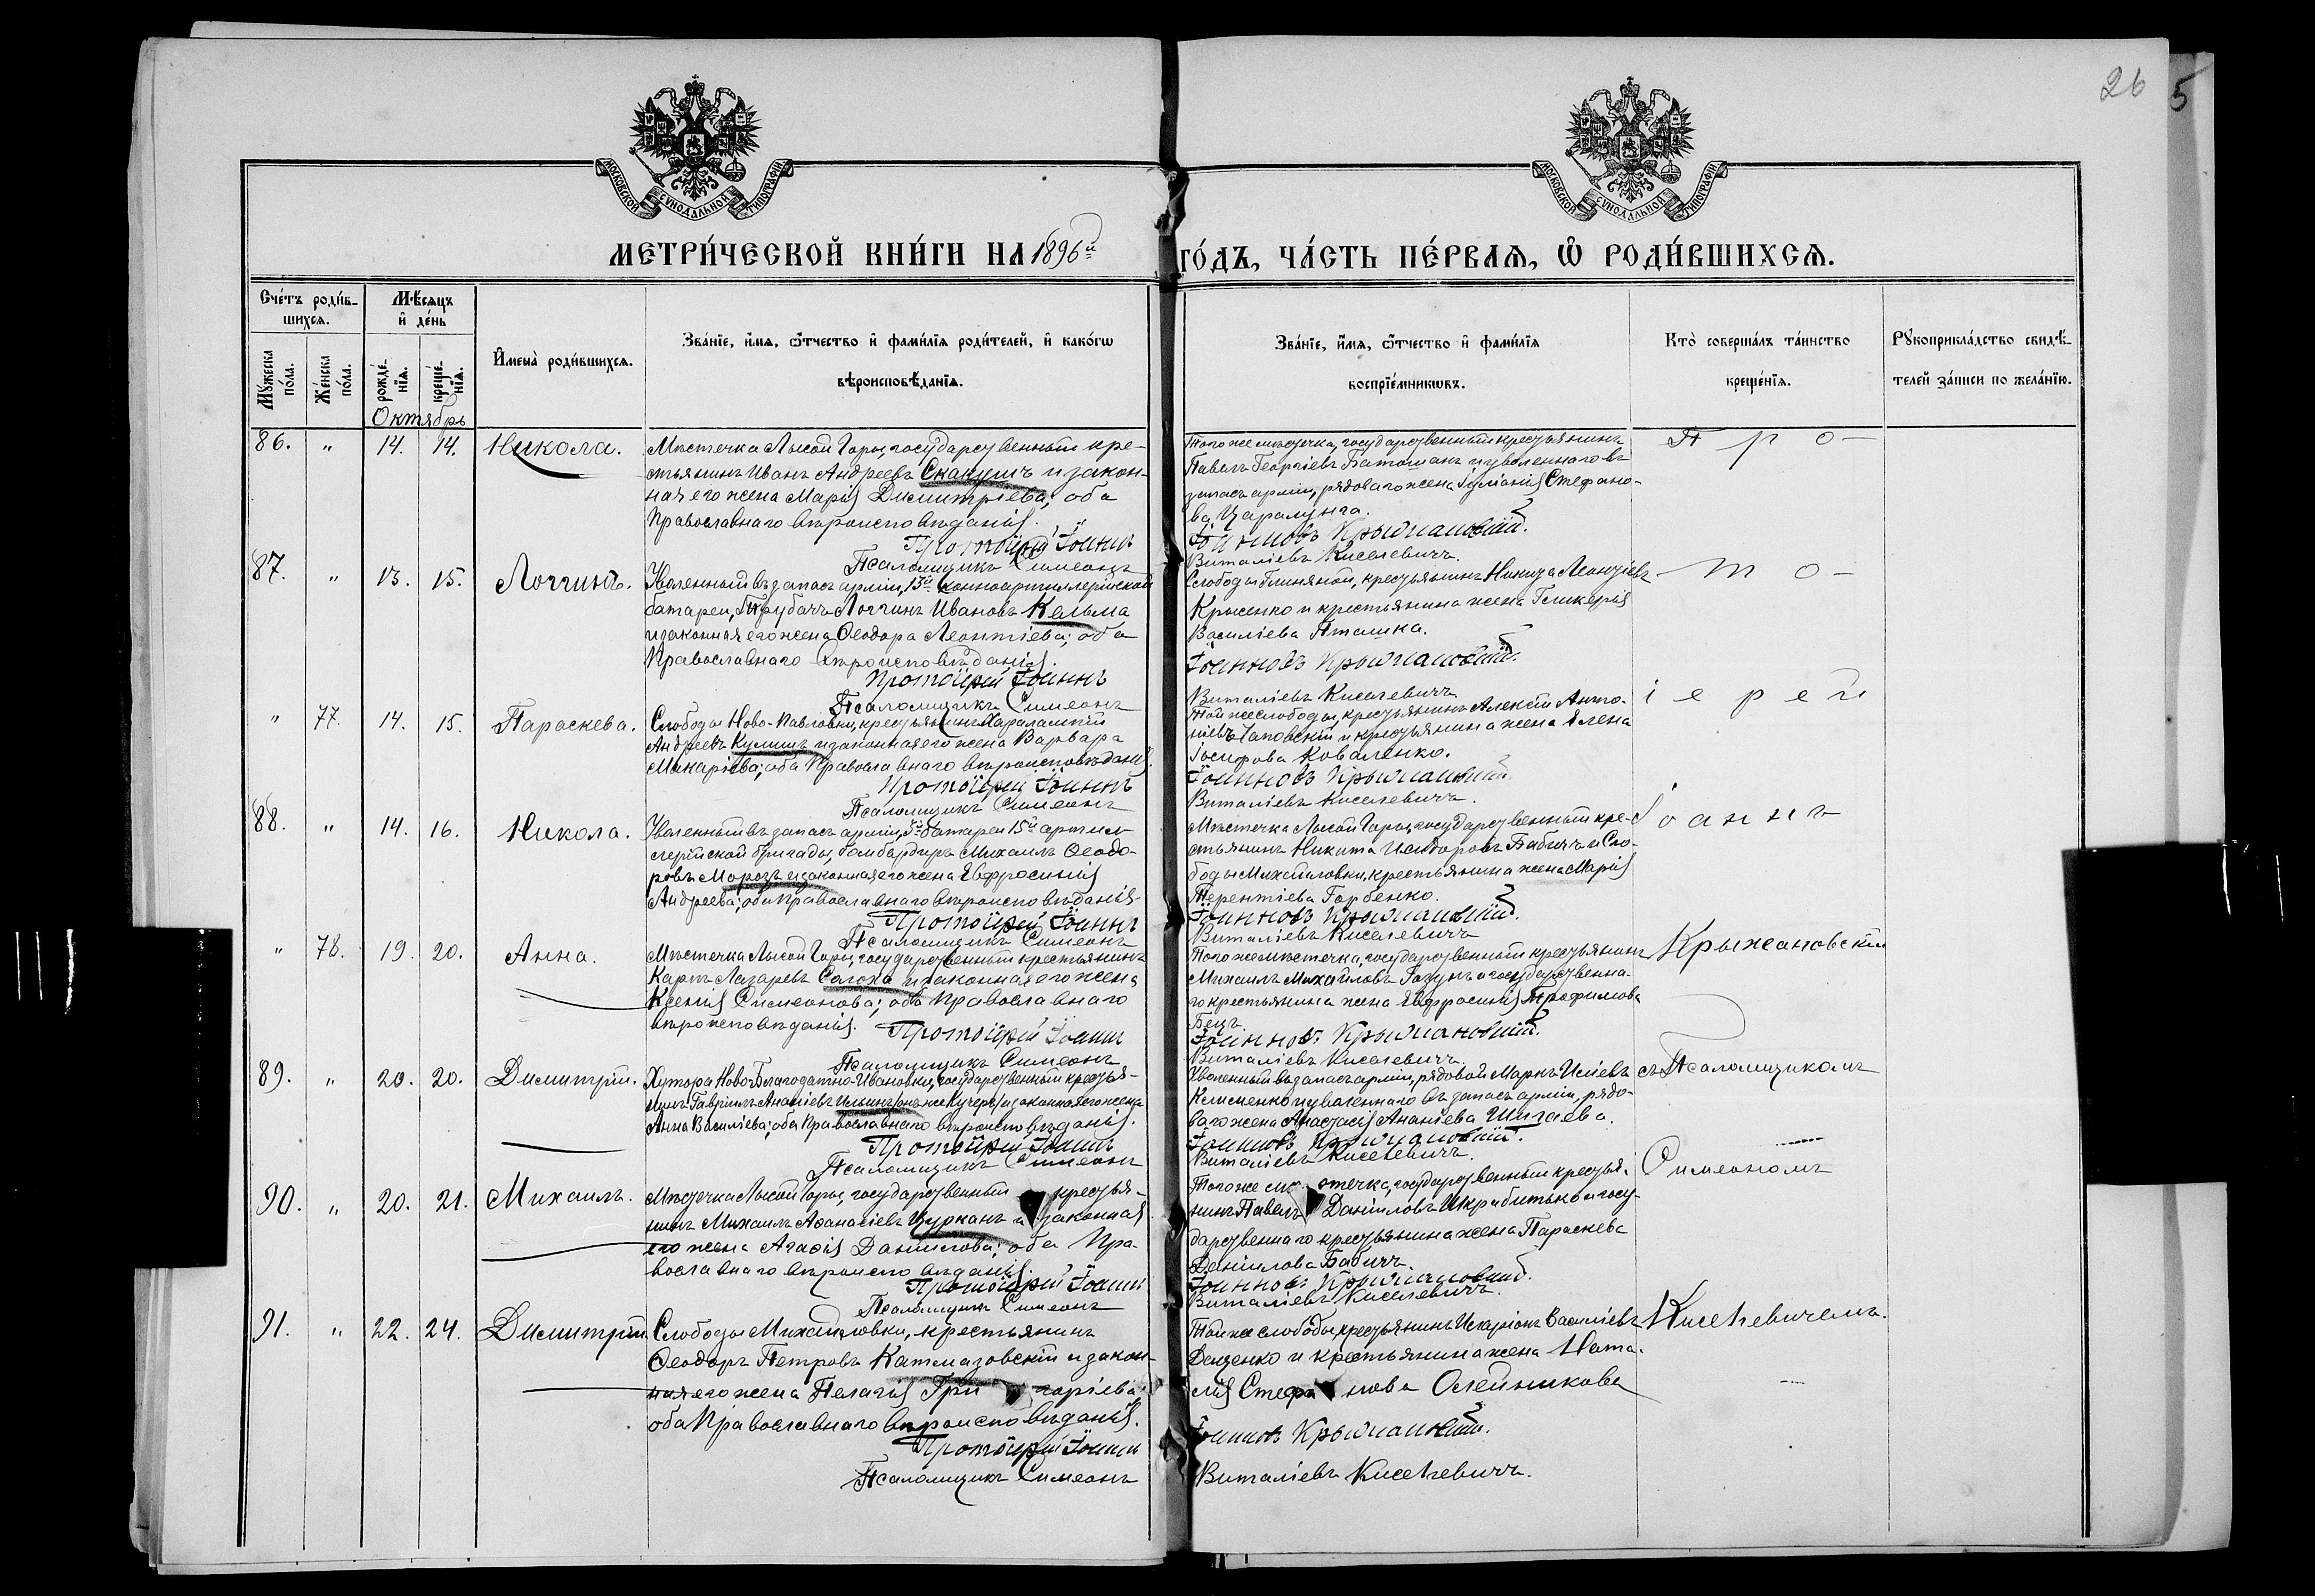 26
5
МОСКОВСКОЙ СѴНОДАЛЬНОЙ ТИПОГРАФІИ
МОСКОВСКОЙ СѴНОДАЛЬНОЙ ТИПОГРАФІИ
МЕТРИ́ЧЕСКОЙ КНИ́ГИ НА 1896й
ГО́ДЪ, ЧА́СТЬ ПЕ́РВАѦ, Ѽ РОДИ́ВШИХСѦ.
Сче́тъ роди́в-
шихсѧ.
Мѣ́сѧцъ
и҆ де́нь
Мꙋ́жеска по́ла.
Же́нска по́ла.
рожде́-нїѧ.
креще́-нїѧ.
Октябрь
И҆мена̀ роди́вшихсѧ.
Зва́нїе, и҆́мѧ, ѻ҆́тчество и҆ фами́лїѧ роди́телей, и҆ како́гѡ
вѣроисповѣ́данїѧ.
Зва́нїе, и҆́мѧ, ѻ҆́тчество и҆ фами́лїѧ
воспрїе́мникѡвъ.
Кто̀ соверша́лъ та́инство
креще́нїѧ.
Рꙋкоприкла́дство свидѣ́-
телей за́писи по жела́нїю.
86. " 14. 14. Никола.
Мѣстечка Лысой Горы, государственный кре-
стьянинъ Иванъ Андреевъ Скакунъ и закон-
ная его жена Марія Димитріева; оба
Православнаго вѣроисповѣданія.
Протоіерей Іоаннъ
Псаломщикъ Симеонъ
Того же мѣстечка, государственный крестьянинъ
Павелъ Георгіевъ Батошанъ и уволеннаго въ
запасъ арміи, рядоваго жена Іуліанія Стефано-
ва Царалунга.
Іоанновъ Крыжановскій.
Виталіевъ Киселевичъ.
Про-
87. " 13. 15. Логгинъ.
Уволенный въ запасъ арміи, 13й конноартиллерійской
батареи, Трубачъ Логгинъ Ивановъ Кельма
и законная его жена Ѳеодора Леонтіева; оба
Православнаго вѣроисповѣданія.
Протоіерей Іоаннъ
Псаломщикъ Симеонъ
Слободы Глиняной, крестьянинъ Никита Леонтіевъ
Крысенко и крестьянина жена Гликерія
Василіева Пташка.
Іоанновъ Крыжановскій.
Виталіевъ Киселевичъ
то-
" 77. 14. 15. Параскева.
Слободы Ново-Павловки, крестьянинъ Харалампій
Андреевъ Кулишъ и законная его жена Варвара
Макаріева; оба Православнаго вѣроисповѣданія.
Протоіерей Іоаннъ
Псаломщикъ Симеонъ
Той же слободы, крестьянинъ Алексій Анто-
ніевъ Гаповскій и крестьянина жена Елена
Іосифова Коваленко.
Іоанновъ Крыжановскій
Виталіевъ Киселевичъ.
іерей
88. " 14. 16. Никола.
Уволенный въ запасъ арміи, 3й батареи 15й артил-
лерійской бригады, бомбардиръ Михаилъ Ѳеодо-
ровъ Морозъ и законная его жена Евфросинія
Андреева; оба Православнаго вѣроисповѣданія.
Протоіерей Іоаннъ
Псаломщикъ Симеонъ
Мѣстечка Лысой Горы, государственный кре-
стьянинъ Никита Исидоровъ Бабичъ и Сло-
боды Михайловки, крестьянина жена Марія
Терентіева Горбенко.
Іоанновъ Крыжановскій.
Виталіевъ Киселевичъ
Іоаннъ
" 78. 19. 20. Анна.
Мѣстечка Лысой Горы, государственный крестьянинъ
Карпъ Лазаревъ Сагоха и законная его жена
Ксенія Симеонова; оба Православнаго
вѣроисповѣданія.
Протоіерей Іоаннъ
Псаломщикъ Симеонъ
Того же мѣстечка, государственный крестьянинъ
Михаилъ Михайловъ и государственна-
го крестьянина жена Евфросинія Трофимова
Бецъ.
Іоанновъ Крыжановскій.
Виталіевъ Киселевичъ.
Крыжановскій
89. " 20. 20. Димитрій.
Хутора Ново-Благодатно-Ивановки, государственный крестья-
нинъ Гавріилъ Ананіевъ Ильинъ /онъ же Кучеръ/ и законная его жена
Анна Василіева; оба Православнаго вѣроисповѣданія.
Протоіерей Іоаннъ
Псаломщикъ Симеонъ
Уволенный въ запасъ арміи, рядовой Маркъ Исіевъ
Клименко и уволеннаго въ запасъ арміи, рядо-
ваго жена Анастасія Ананіева Шигаева.
Іоанновъ Крыжановскій.
Виталіевъ Киселевичъ.
съ Псаломщикомъ
90. " 20. 21. Михаилъ.
Мѣстечка Лысой Горы, государственный крестья-
нинъ Михаилъ Аѳанасіевъ Цурканъ и законная
его жена Агаѳія Даніилова; оба Пра-
вославнаго вѣроисповѣданія.
Протоіерей Іоаннъ
Псаломщикъ Симеонъ
Того же мѣстечка, государственный крестья-
нинъ Павелъ Даніиловъ Шкрабитько и госу-
дарственнаго крестьянина жена Параскева
Даніилова Бабичъ.
Іоанновъ Крыжановскій.
Виталіевъ Киселевичъ.
Симеономъ
91. " 22. 24. Димитрій.
Слободы Михайловки, крестьянинъ
Ѳеодоръ Петровъ Катмазовскій и закон-
ная его жена Пелагія Григоріева;
оба Православнаго вѣроисповѣданія.
Протоіерей Іоаннъ
Псаломщикъ Симеонъ
Той же слободы, крестьянинъ Иларіонъ Василіевъ
Деценко и крестьянина жена Ната-
лія Стефанова Олейникова
Іоанновъ Крыжановскій.
Виталіевъ Киселевичъ.
Киселевичемъ.